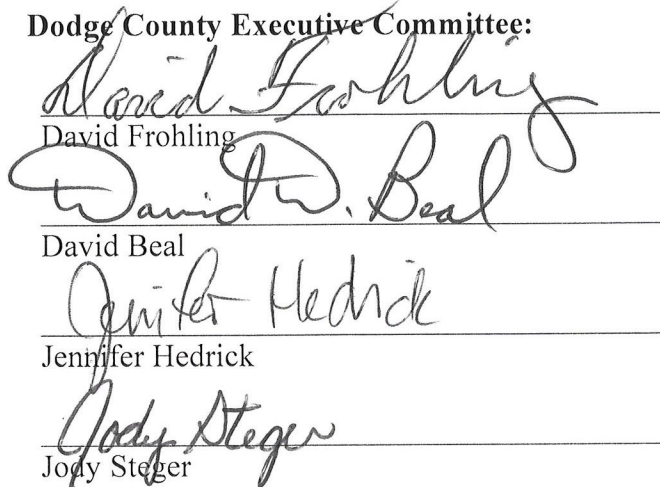 Dodge County Executive Committee:
David Frohling
David Frohling
David W. Beal
David Beal
Jennifer Hedrick
Jennifer Hedrick
Jody Steger
Jody Steger